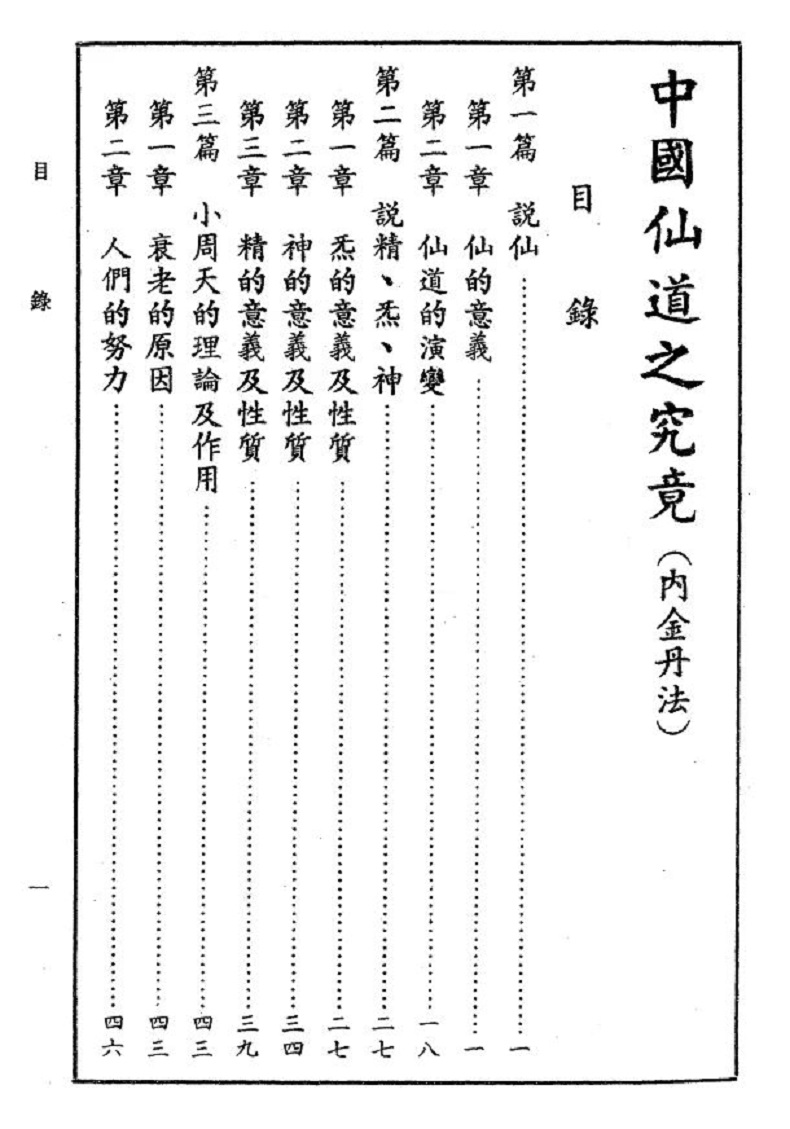 中國仙道之究竟（內金丹法）
目　錄
第一篇　說仙……一
第一章　仙的意義……一
第二章　仙道的演變……一八
第二篇　說精、炁、神……二七
第一章　炁的意義及性質……二七
第二章　神的意義及性質……三四
第三章　精的意義及性質……三九
第三篇　小周天的理論及作用……四三
第一章　衰老的原因……四三
第二章　人們的努力……四六
目　錄
一